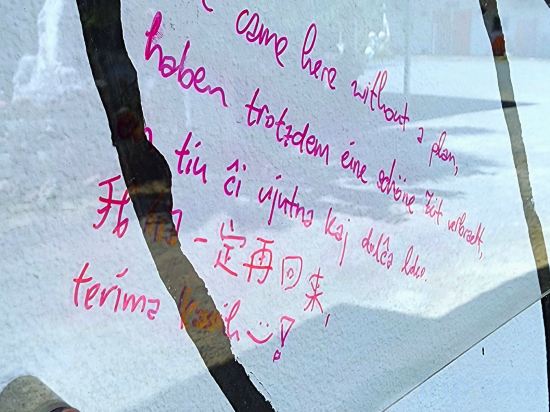 came here without a plan,
haben trotzdem eine schöne Zeit verbracht,
tiu ĉi ujutna kaj dolĉa loko.
我们一定再回来,
terima kasih !